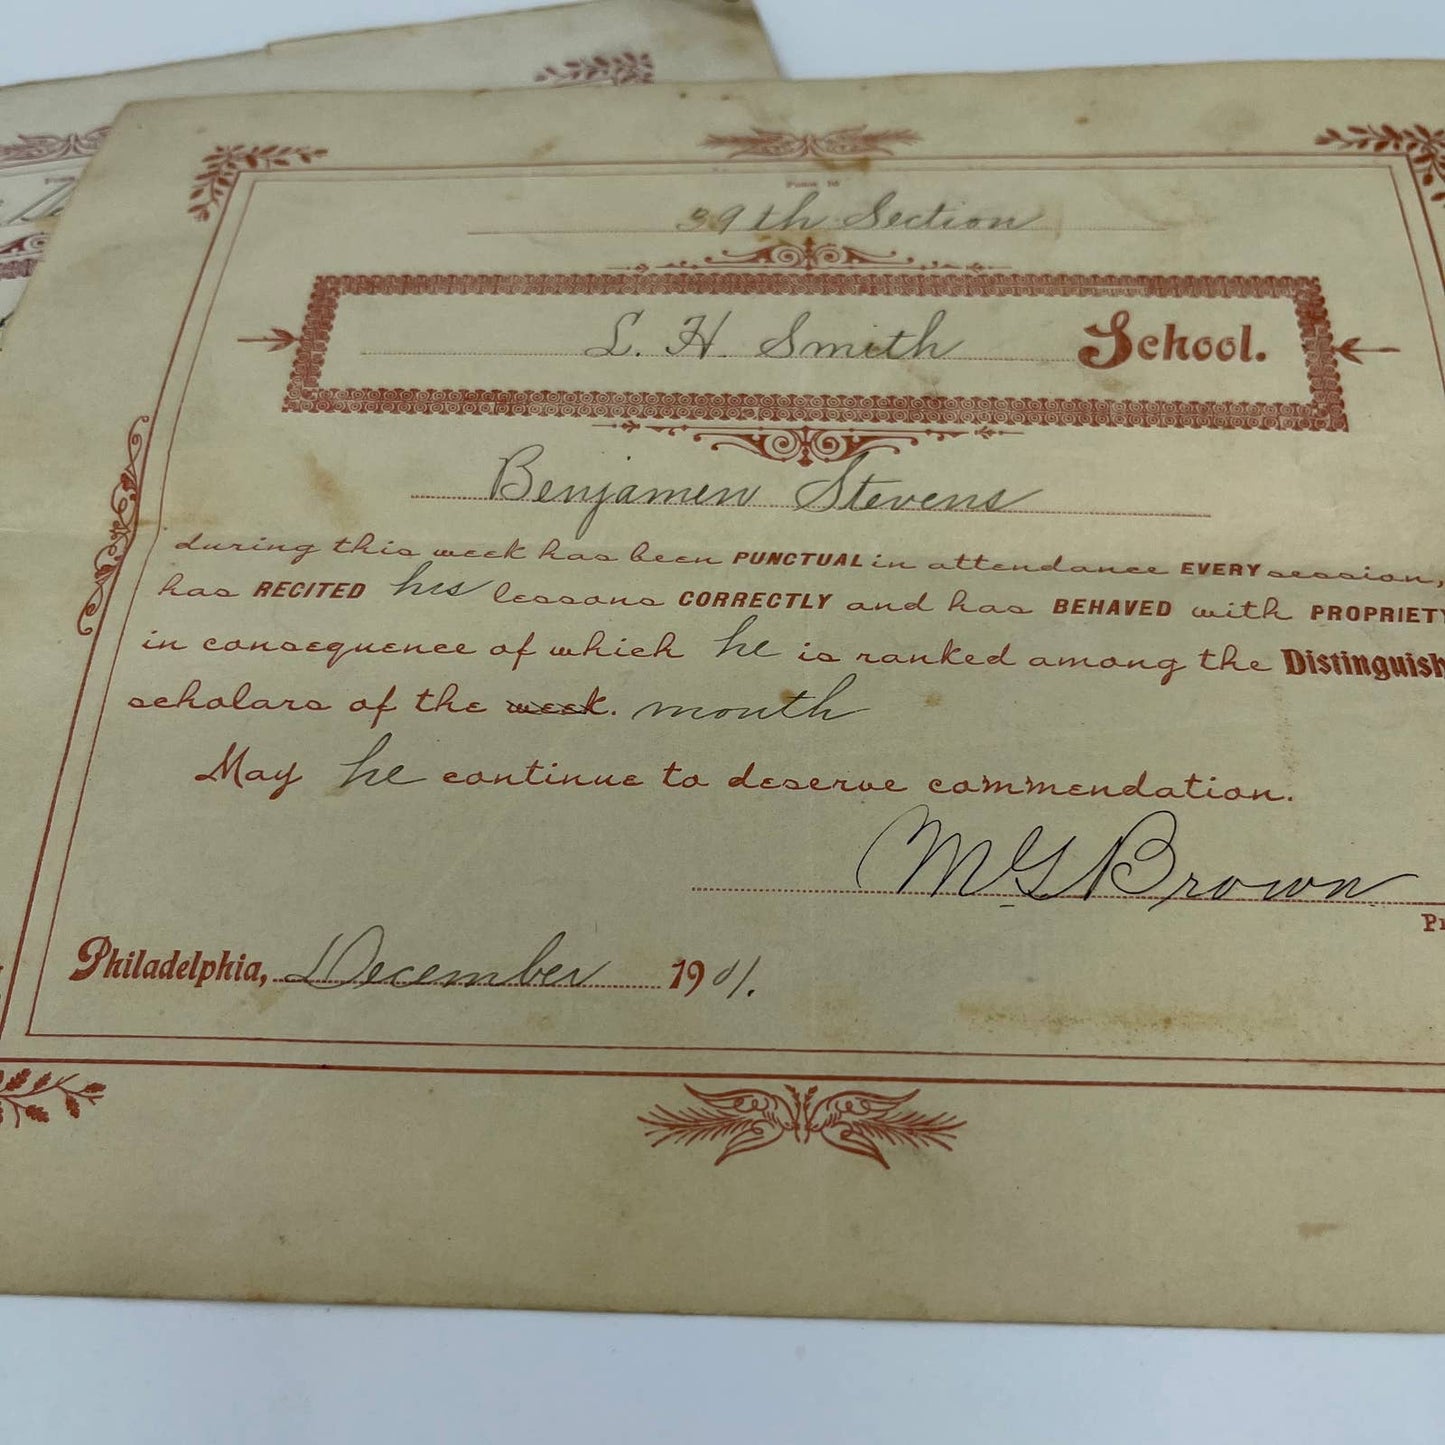 39th Section
L. H. Smith School.
Benjamen Stevens
during this week has been PUNCTUAL in attendance EVERY session,
has RECITED his lessons CORRECTLY and has BEHAVED with PROPRIETY
in consequence of which he is ranked among the Distinguish
scholars of the week. month
May he continue to deserve commendation.
M G Brown
Pr
Philadelphia, December 1901.